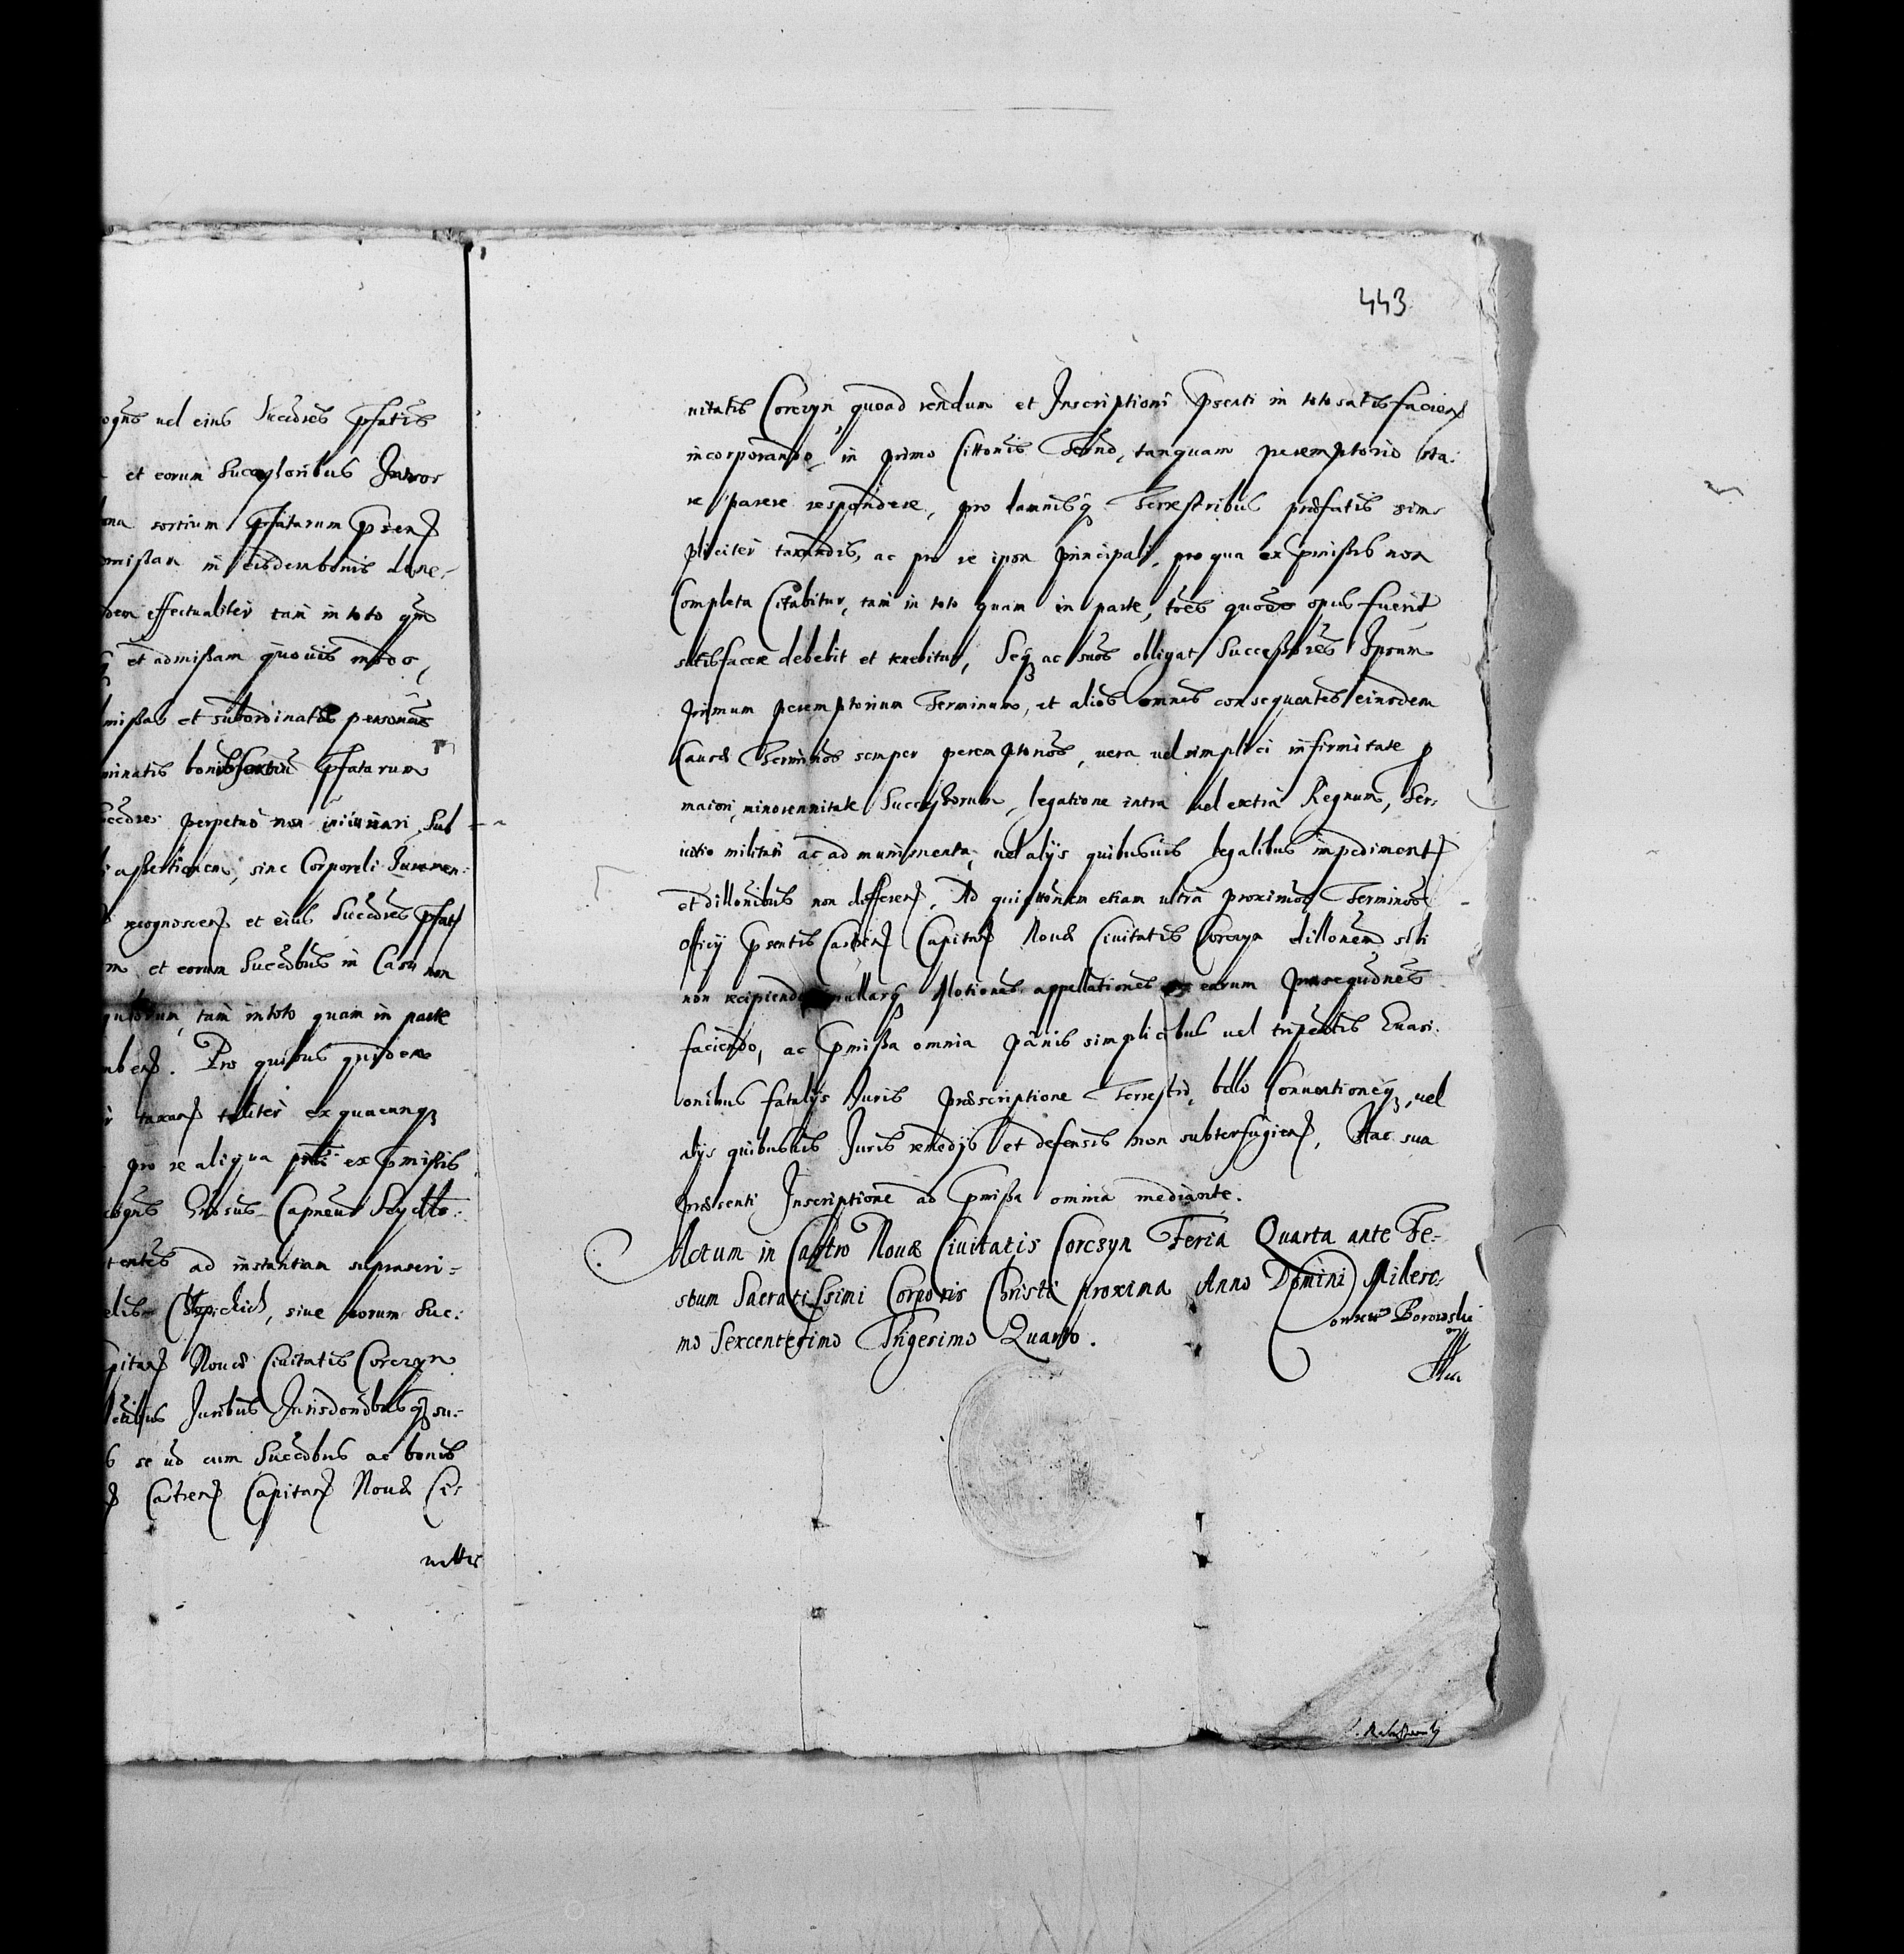 ogns uel eius Succẽdres Pfatis
et eorum Successoribus Juros
ona sortium Pfatarum Psenß
omißam in eisdem bonis dare,
dem effectualiter tam in toto qm̃
et admißam quouis modo,
mißas et subordinatas personas
minatis bonis sortiũ Pfatarum
Succedres perpetuo non iniuriari. Sub
aßertionem, sine Corporeli Juramen:
recognoscenß et eius Succedres Pfatß
m et eorum Succedbus in Casu non
tam in toto quam in parte
mbenß. Pro quibus quidem
taxanß taliter ex quacunqꝫ
pro re aliqua ex Pmißis
cognß
tentes ad instantiam suprascri=
siue eorum Suc:
Capitanß Nouæ Ciuitatis Corczyn
Juribus Jurisdondbusqꝫ su:
se ud cum Succedbus ac bonis
Castrenß Capitanß Nouæ Ci:
uittis
443
uitatis Corczyn quoad rendum et Inscriptioni Psenti in toto satisfacienß
incorporando, in primo Cittonis Termo, tanquam peremptorio sta:
re parere respondere, pro damnisqꝫ Terrestribus præfatis sim:
pliciter taxandis, ac pro re ipsa principali, pro qua ex Pmißis non
Completa Citabitur, tam in toto quam in parte, toes quoties opus fuerit
satisfacere debebit et tenebitur, Seqꝫ ac suos obligat Succeßores Ipsum
primum peremptorium Terminum, et alios omnes consequentes eiusdem
Causæ Terminos semper peremptorios, uera uel simplici infirmitate p
maiori, minorennitate Succeßorum, legatione intra uel extra Regnum, Ser:
uitio militari ac ad munimenta, uel alÿs quibusuis legalibus impedimentß
et dillonibus non differenß. Ad quittonem etiam ultra proximos Terminos
Officÿ Psentis Castrenß Capitanß Nouæ Ciuitatis Corczyn dillonem sibi
non recipiendo nullasqꝫ Motiones appellationes earum prosequdnes
faciendo, ac Pmißa omnia pænis simplicibus uel tripertis Euasi:
onibus fatalÿs Juris præscriptione Terrestri, bello Conuentioneqꝫ, uel
alÿs quibusuis Juris remedÿs et defensis non subterfugienß, Hac sua
præsenti Inscriptione ad Pmißa omnia mediante.
Actum in Castro Nouæ Ciuitatis Corcsyn Feria Quarta ante Fe=
stum Sacratissimi Corporis Christi proxima Anno Domini Milesi:
mo Sexcentesimo Trigesimo Quarto.
Borowski